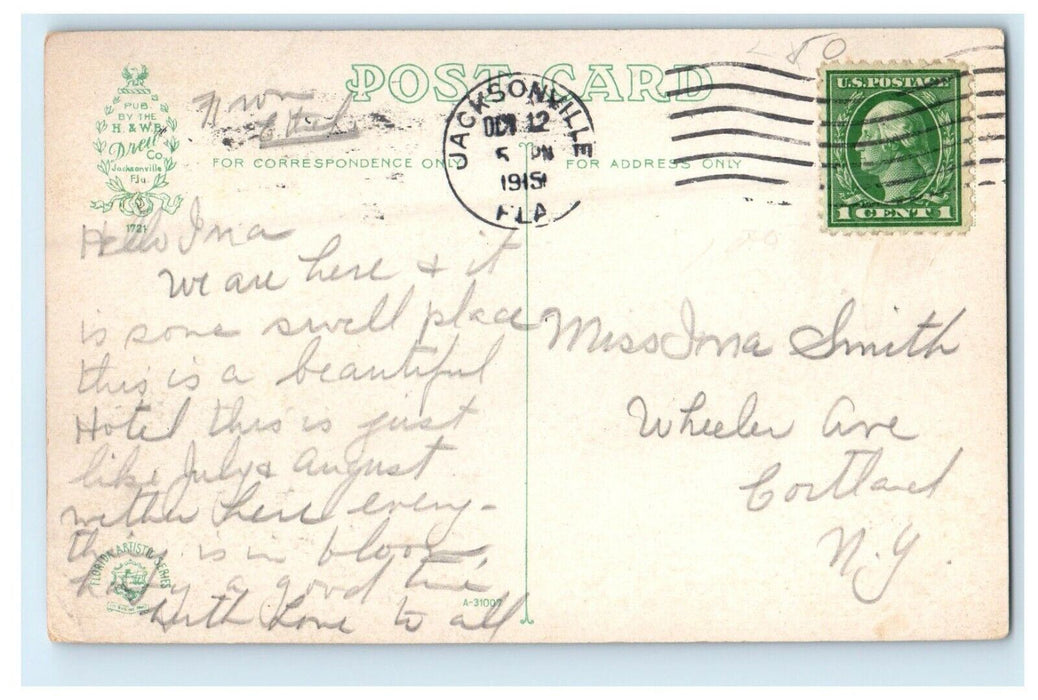 POST CARD
80
U.S. POSTAGE
1 CENT 1
JACKSONVILLE
DEC 12
5 PM
1915
FLA
PUB.
BY THE
H. & W.B.
Drew
Co
Jacksonville
Fla.
1721
From
FOR CORRESPONDENCE ONLY
FOR ADDRESS ONLY
Hello Ina
We are here & it
is some swell place
this is a beautiful
Hotel this is just
like July & August
wether here every-
thing is in bloom,
having a good time
with Love to all
FLORIDA ARTISTIC SERIES
A-31007
Miss Ina Smith
Wheeler Ave
Cortland
N.Y.